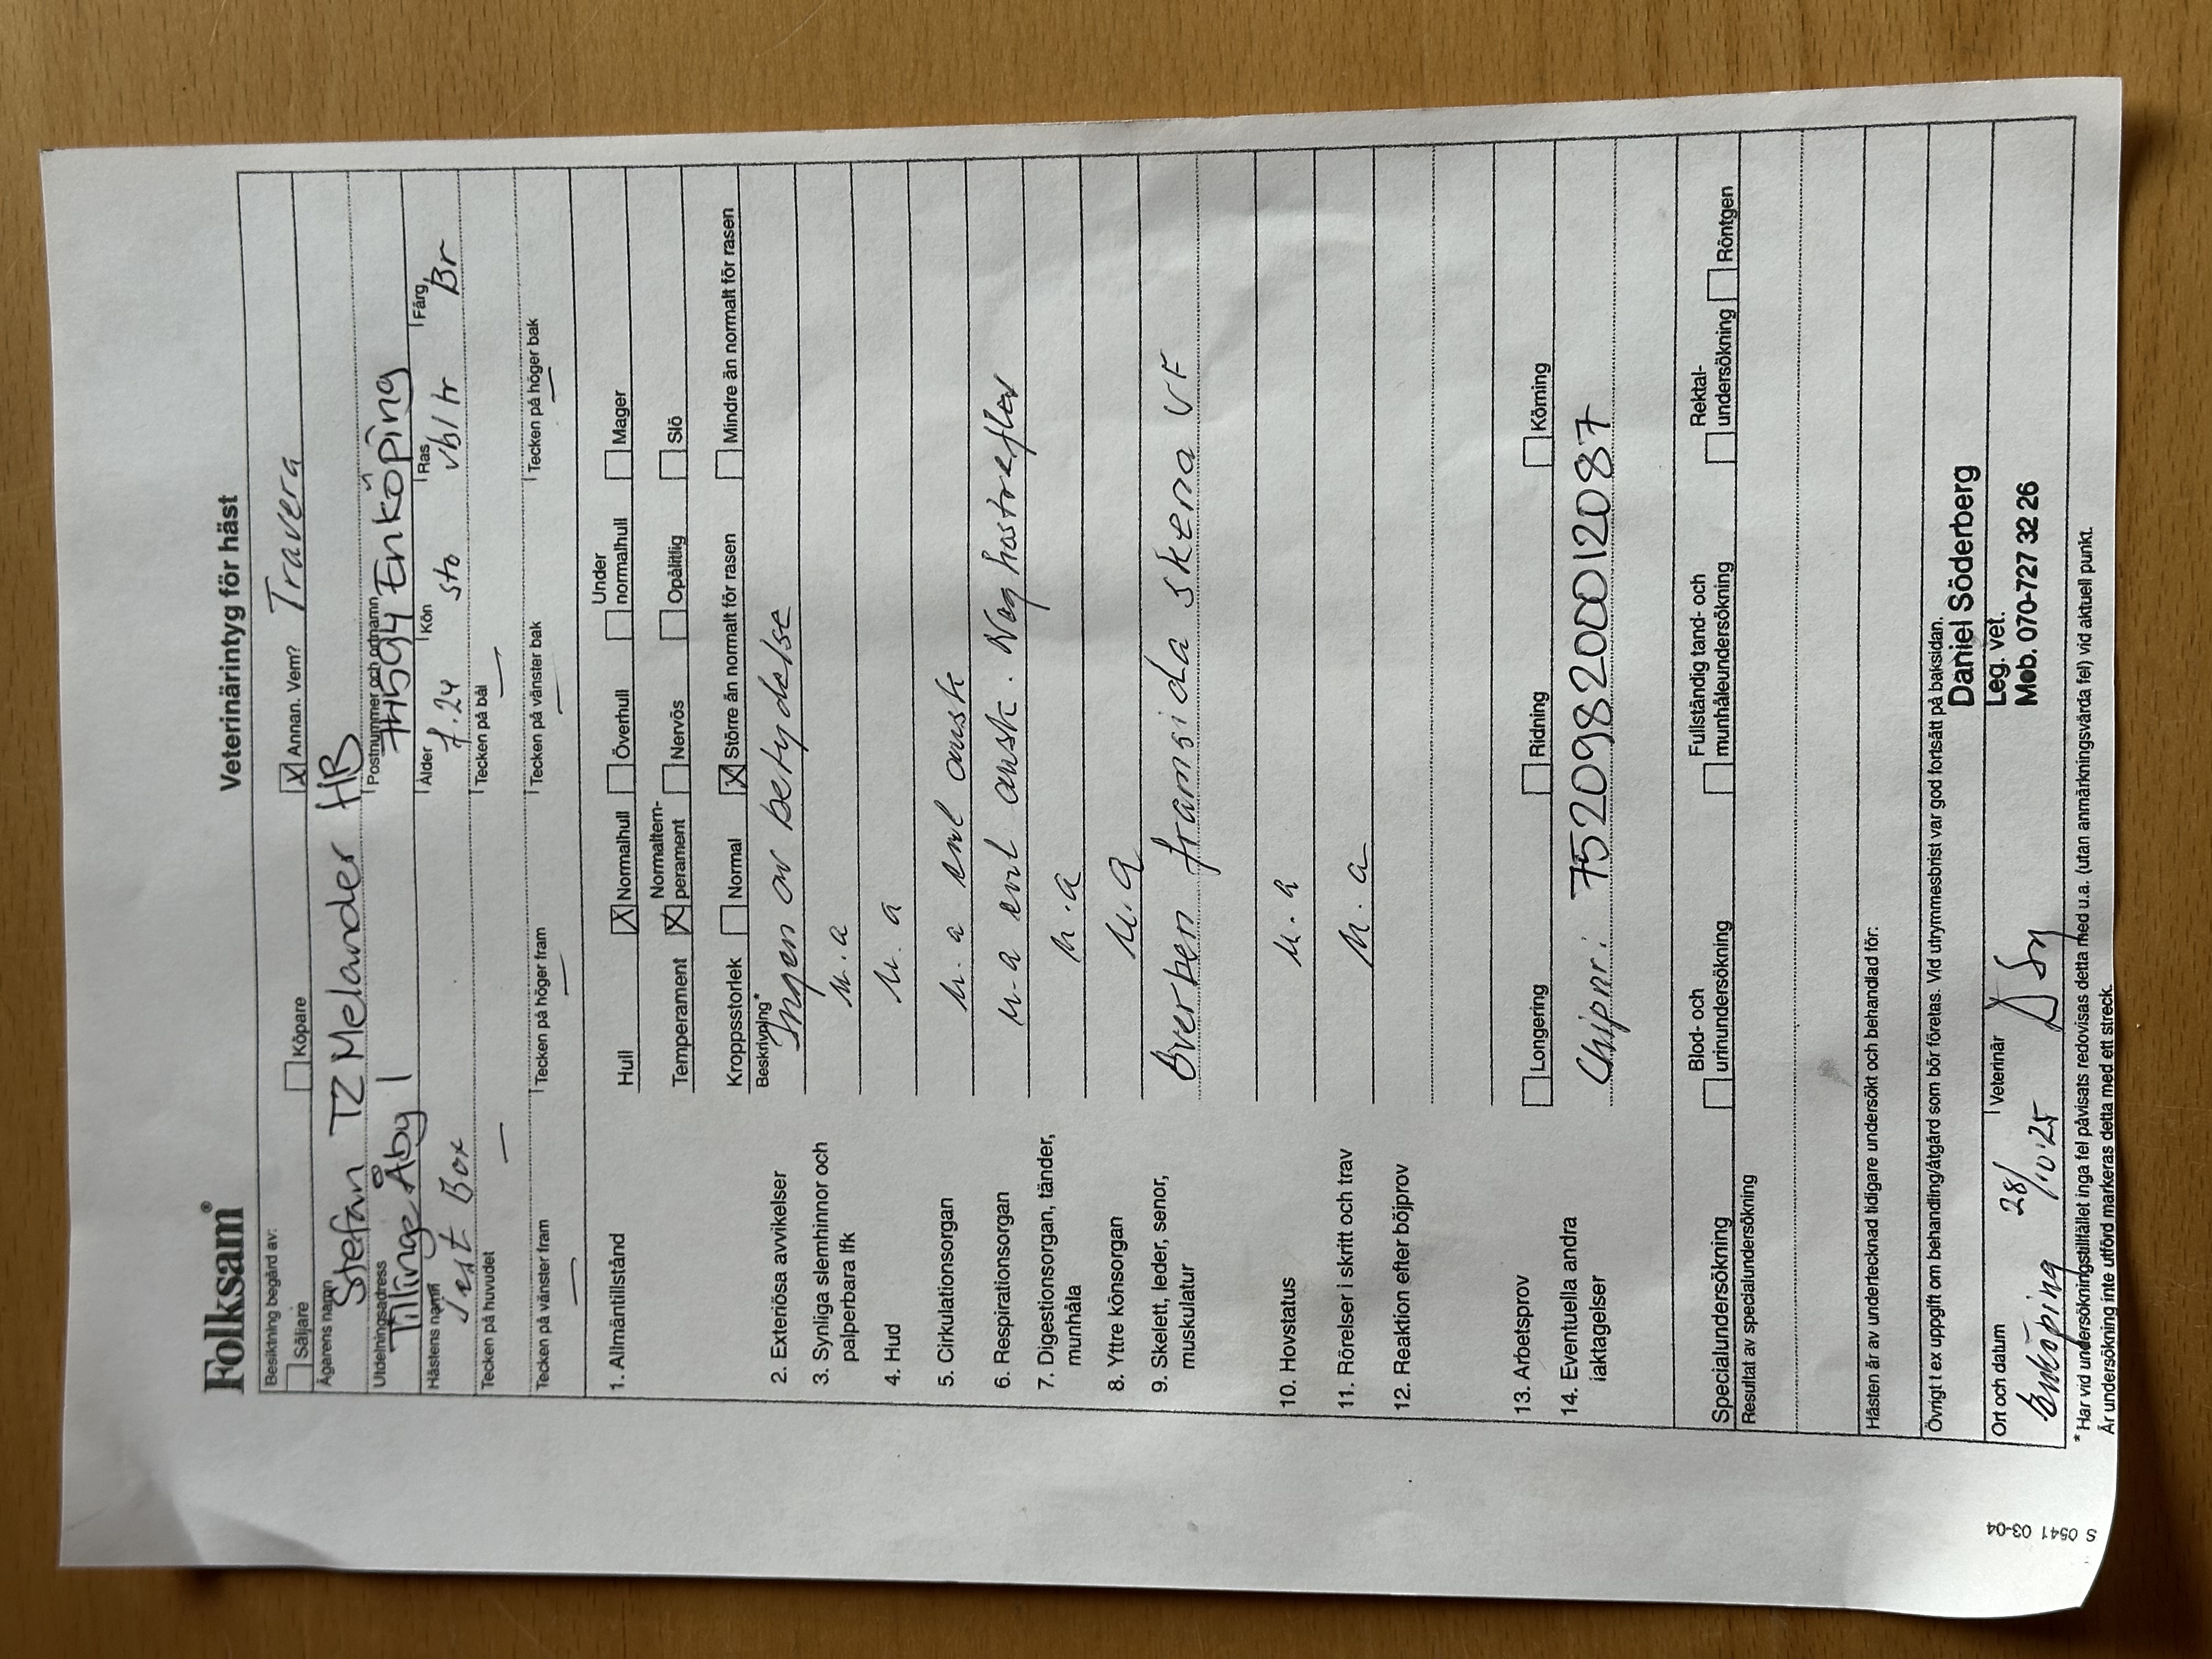 Folksam®
Veterinärintyg för häst
Besiktning begärd av:
Säljare Köpare X Annan. Vem? Travera
Ägarens namn
Stefan TZ Melander HB
Utdelningsadress Postnummer och ortnamn
Tillinge Åby 1 74594 Enköping
Hästens namn Ålder Kön Ras Färg
Box f.24 sto vbltr Br
Tecken på huvudet Tecken på bål
— —
Tecken på vänster fram Tecken på höger fram Tecken på vänster bak Tecken på höger bak
— — — —
1. Allmäntillstånd Hull X Normalhull Överhull Under normalhull Mager
Temperament X Normaltem-perament Nervös Opålitlig Slö
Kroppsstorlek Normal X Större än normalt för rasen Mindre än normalt för rasen
Beskrivning*
2. Exteriösa avvikelser Ingen av betydelse
3. Synliga slemhinnor och palperbara lfk u.a
4. Hud u.a
5. Cirkulationsorgan u.a enl ausk
6. Respirationsorgan u.a enl ausk. Neg hostreflex
7. Digestionsorgan, tänder, munhåla u.a
8. Yttre könsorgan u.a
9. Skelett, leder, senor, muskulatur Överben framsida skena VF
10. Hovstatus u.a
11. Rörelser i skritt och trav u.a
12. Reaktion efter böjprov
13. Arbetsprov Longering Ridning Körning
14. Eventuella andra iakttagelser Chipnr: 752098200012087
Specialundersökning Blod- och urinundersökning Fullständig tand- och munhåleundersökning Rektal-undersökning Röntgen
Resultat av specialundersökning
Hästen är av undertecknad tidigare undersökt och behandlad för:
Övrigt t ex uppgift om behandling/åtgärd som bör företas. Vid utrymmesbrist var god fortsätt på baksidan.
Daniel Söderberg
Leg. vet.
Mob. 070-727 32 26
Ort och datum Veterinär
Enköping 28/10.25
* Har vid undersökningstillfället inga fel påvisats redovisas detta med u.a. (utan anmärkningsvärda fel) vid aktuell punkt.
Är undersökning inte utförd markeras detta med ett streck.
S 0541 03-04